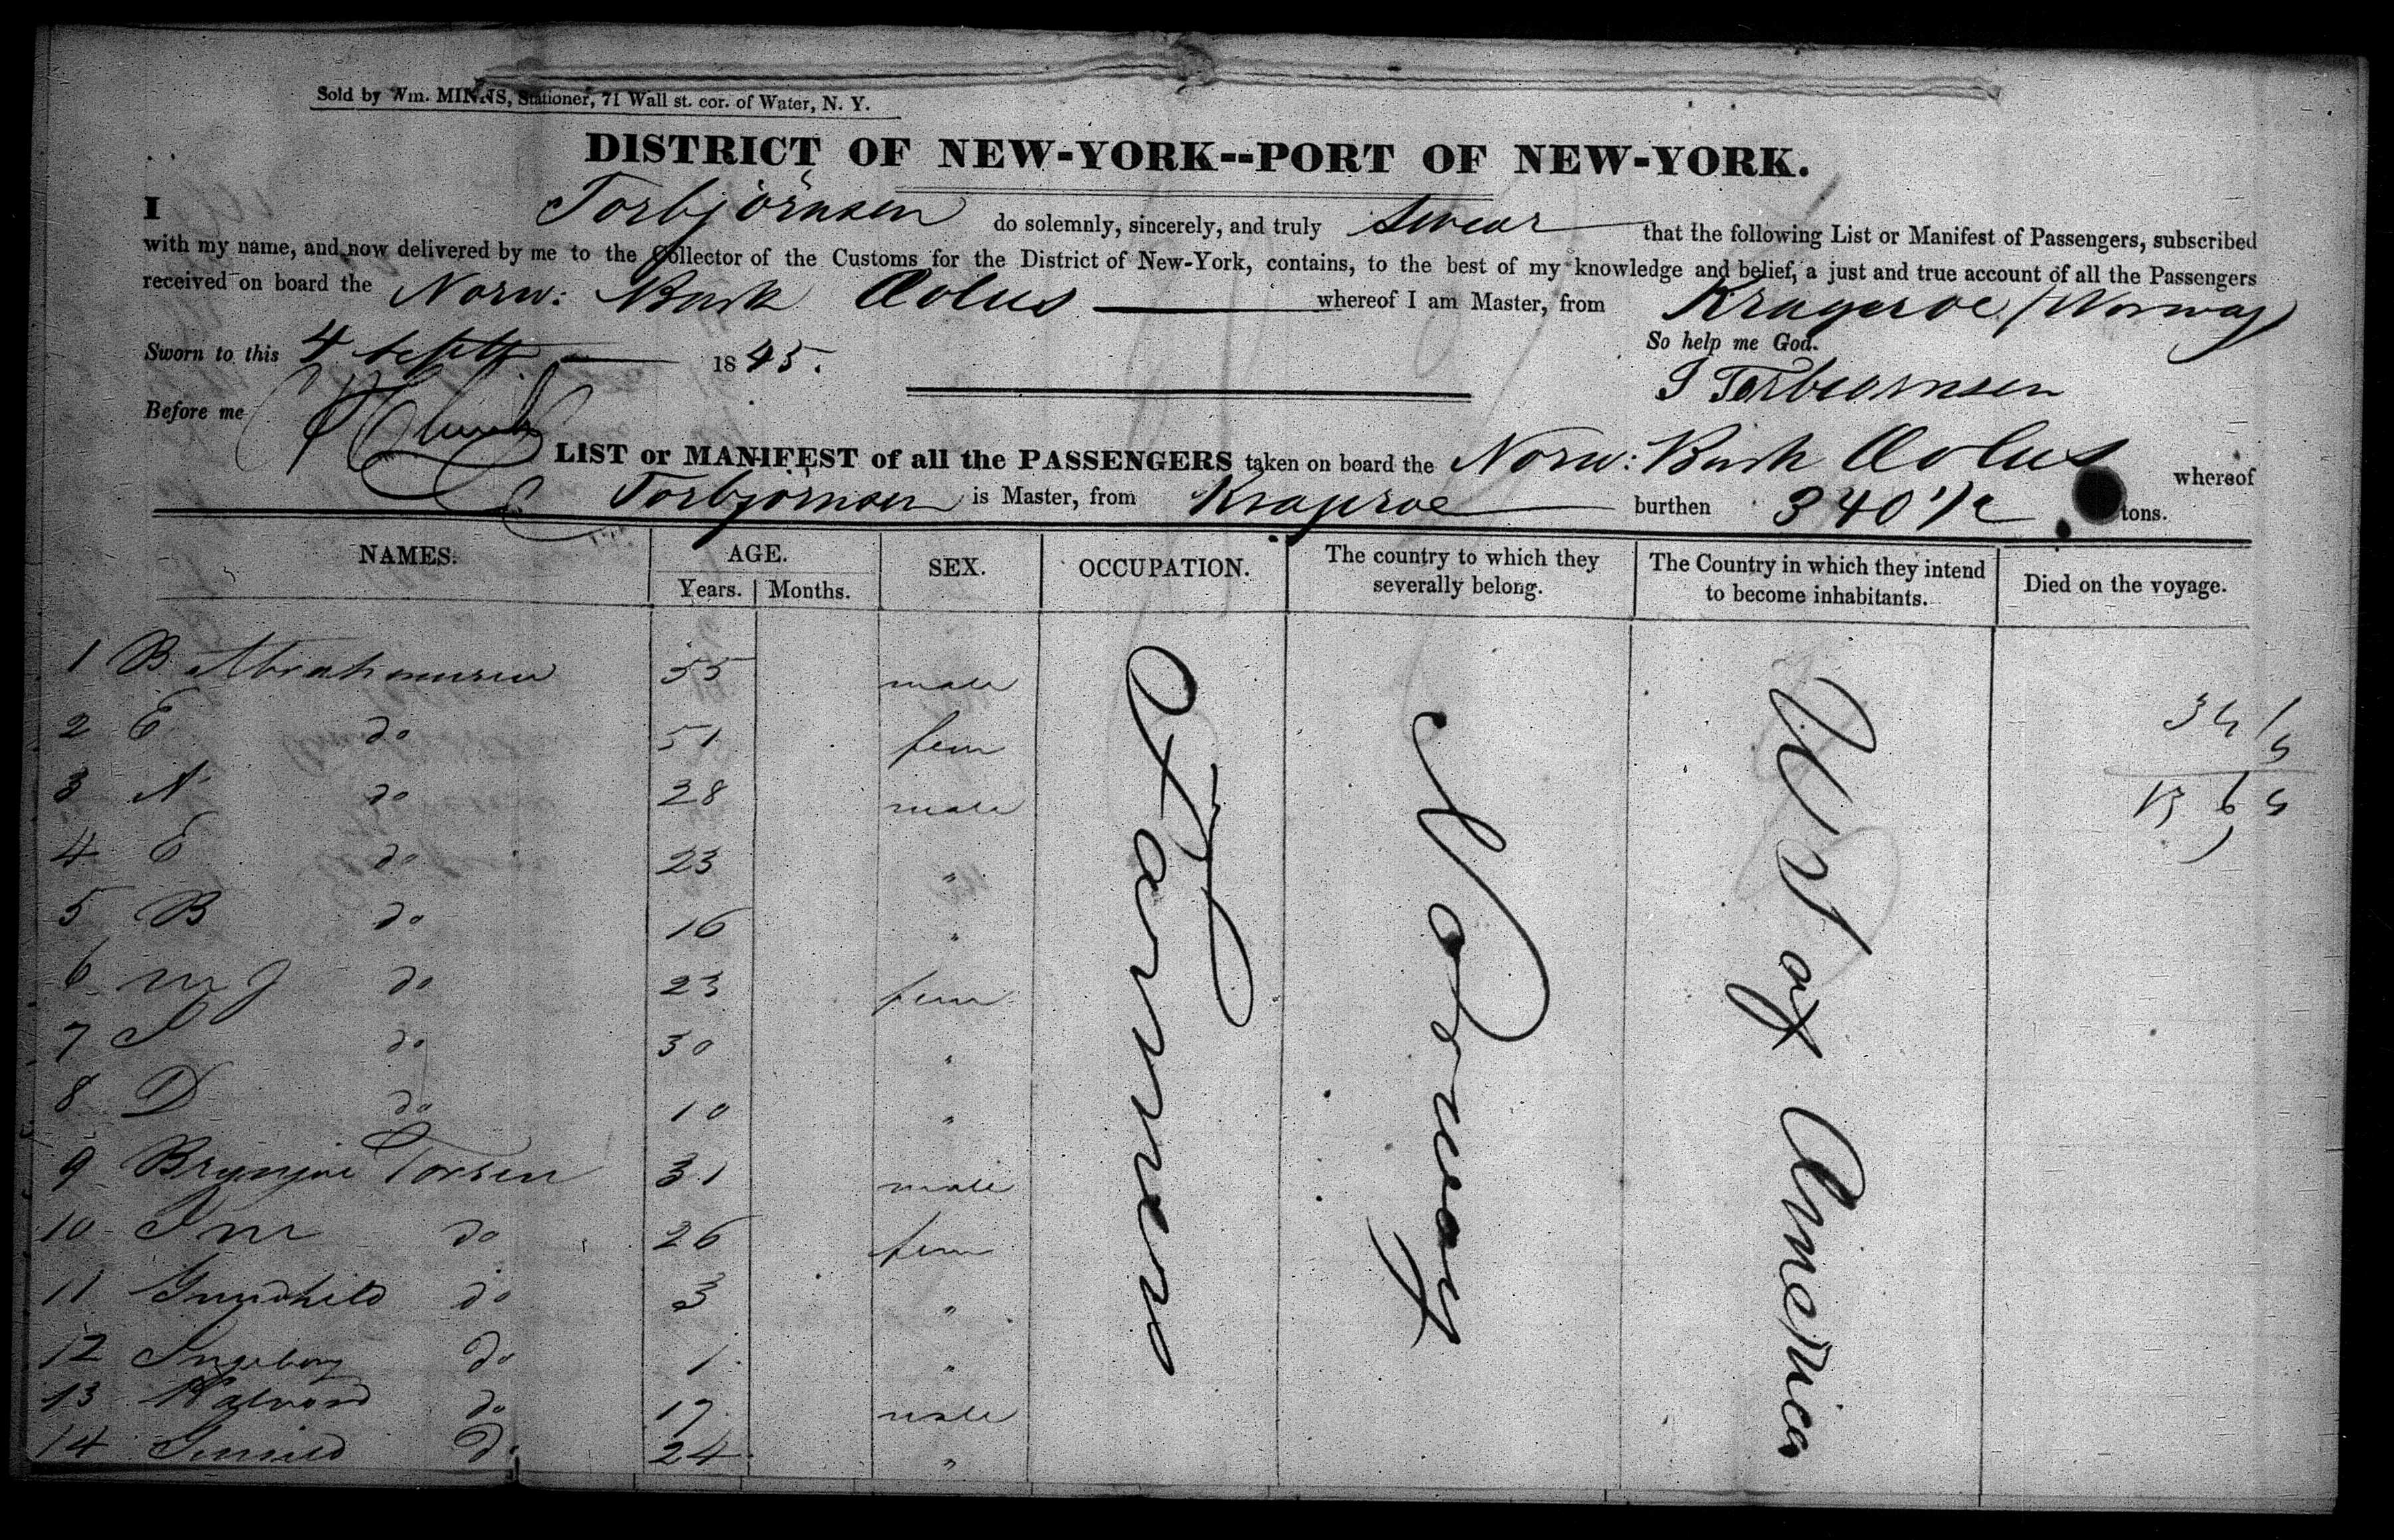 Sold by Wm. MINNS, Stationer, 71 Wall st. cor. of Water, N. Y.
DISTRICT OF NEW-YORK--PORT OF NEW-YORK.
I Torbjörnsen do solemnly, sincerely, and truly swear that the following List or Manifest of Passengers, subscribed
with my name, and now delivered by me to the Collector of the Customs for the District of New-York, contains, to the best of my knowledge and belief, a just and true account of all the Passengers
received on board the Norw: Bark Aolus whereof I am Master, from Krageroe / Norway
So help me God.
Sworn to this 4 Septb 1845.
Torbiornsen
Before me
LIST or MANIFEST of all the PASSENGERS taken on board the Norw: Bark Aolus whereof
Torbjornsen is Master, from Krageroe burthen 340 1/2 tons.
NAMES. AGE. SEX. OCCUPATION. The country to which they severally belong. The Country in which they intend to become inhabitants. Died on the voyage.
Years. Months.
1 B Abrahamsen 55 male
2 E do 51 fem
3 N do 28 male
4 E do 23 "
5 B do 16 "
6 M J do 23 fem
7 S do 30 "
8 D do 10 "
9 Brynjon Torsen 31 male
10 do 26 fem
11 Gundhild do 3 "
12 Ingeborg do 1 "
13 Halvord do 17 male
14 do 24 "
Farmers
Norway
U S of America